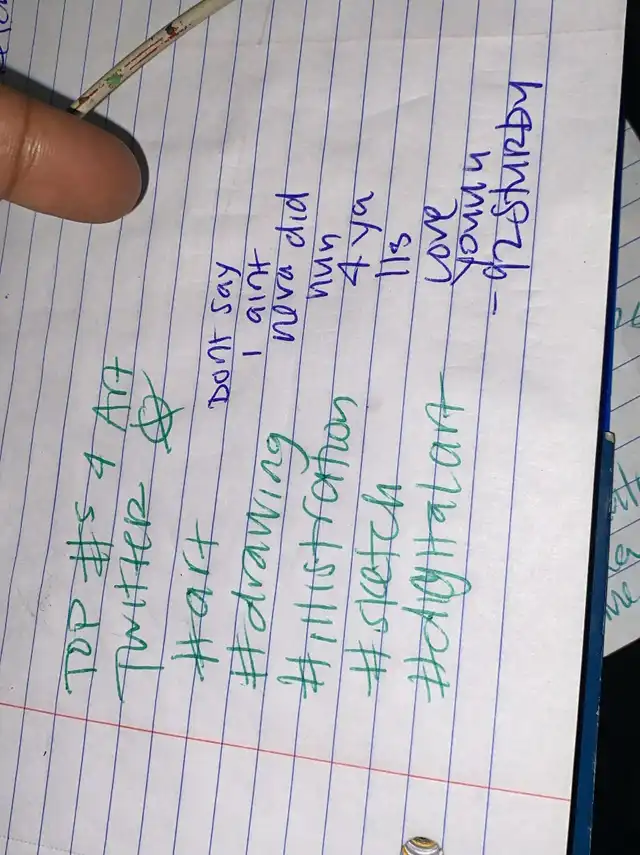 TOP #s 4 Art
TWITTER
#art
#drawing
#illistration
#sketch
#digitalart
DONT say
I aint
neva did
nun
4 ya
lls
Love
younin